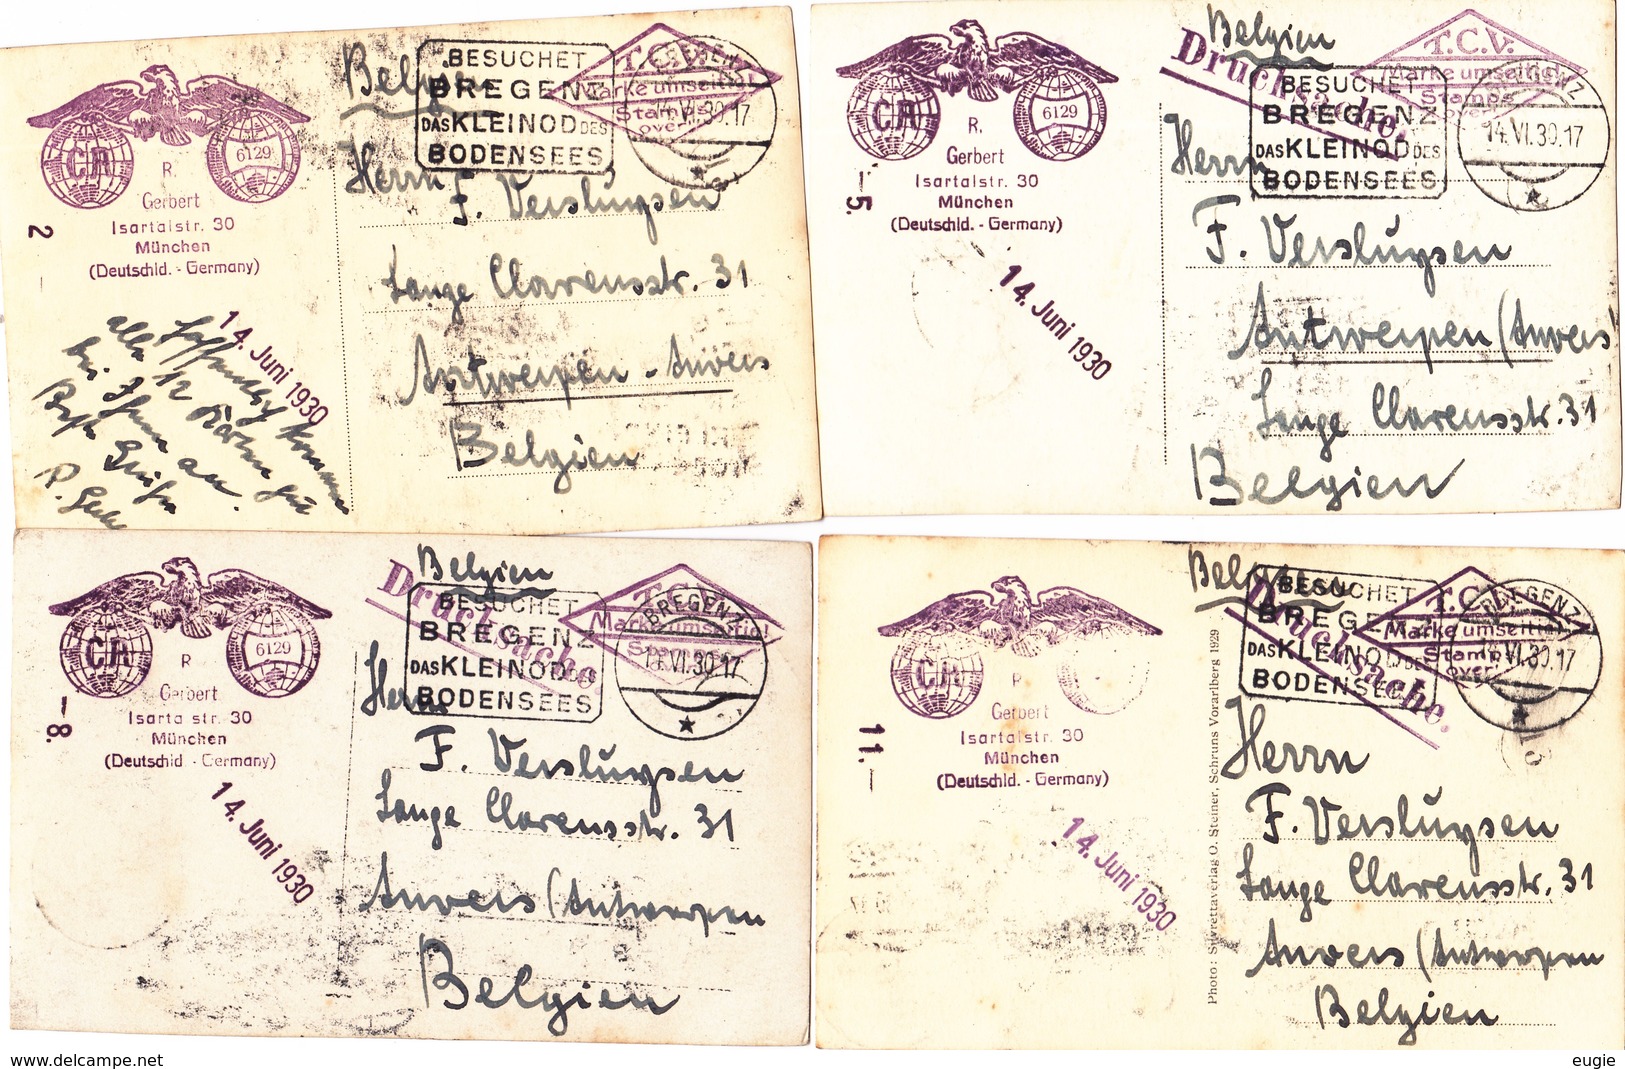 Belgien
BESUCHET
BREGENZ
DAS KLEINOD DES
BODENSEES
T.C.V.
Marke umseitig!
Stamps
over!
BREGENZ
14.VI.30.17
CR
6129
R.
Gerbert
Isartalstr. 30
München
(Deutschld. - Germany)
2
14. Juni 1930
Hoffentlich kommen
alle 12 Karten gut
bei Ihnen an.
R. Ge
Herrn
F. Versluysen
Lange Clarensstr. 31
Antwerpen - Anvers
Belgien
Belgien
Drucksache.
BESUCHET
BREGENZ
DAS KLEINOD DES
BODENSEES
T.C.V.
Marke umseitig!
Stamps
over!
BREGENZ
14.VI.30.17
CR
6129
R.
Gerbert
Isartalstr. 30
München
(Deutschld. - Germany)
-5.
14. Juni 1930
Herrn
F. Versluysen
Antwerpen (Anvers
Lange Clarensstr. 31
Belgien
Belgien
Drucksache.
BESUCHET
BREGENZ
DAS KLEINOD DES
BODENSEES
T.C.V.
Marke umseitig!
Stamps
BREGENZ
14.VI.30.17
CR
6129
R
Gerbert
Isarta str. 30
München
(Deutschld - Germany)
-8.
14. Juni 1930
Herrn
F. Versluysen
Lange Clarensstr. 31
Anvers (Antwerpen
Belgien
Belgien
Drucksache.
BESUCHET
BREGENZ
DAS KLEINOD DES
BODENSEES
T.C.V.
Marke umseitig!
Stamps
over!
BREGENZ
14.VI.30.17
CR
R
Gerbert
Isartalstr. 30
München
(Deutschld. - Germany)
11.-
14. Juni 1930
Photo: Silvrettaverlag O. Steiner, Schruns Vorarlberg 1929
Herrn
F. Versluysen
Lange Clarensstr. 31
Anvers (Antwerpen
Belgien
www.delcampe.net
eugie